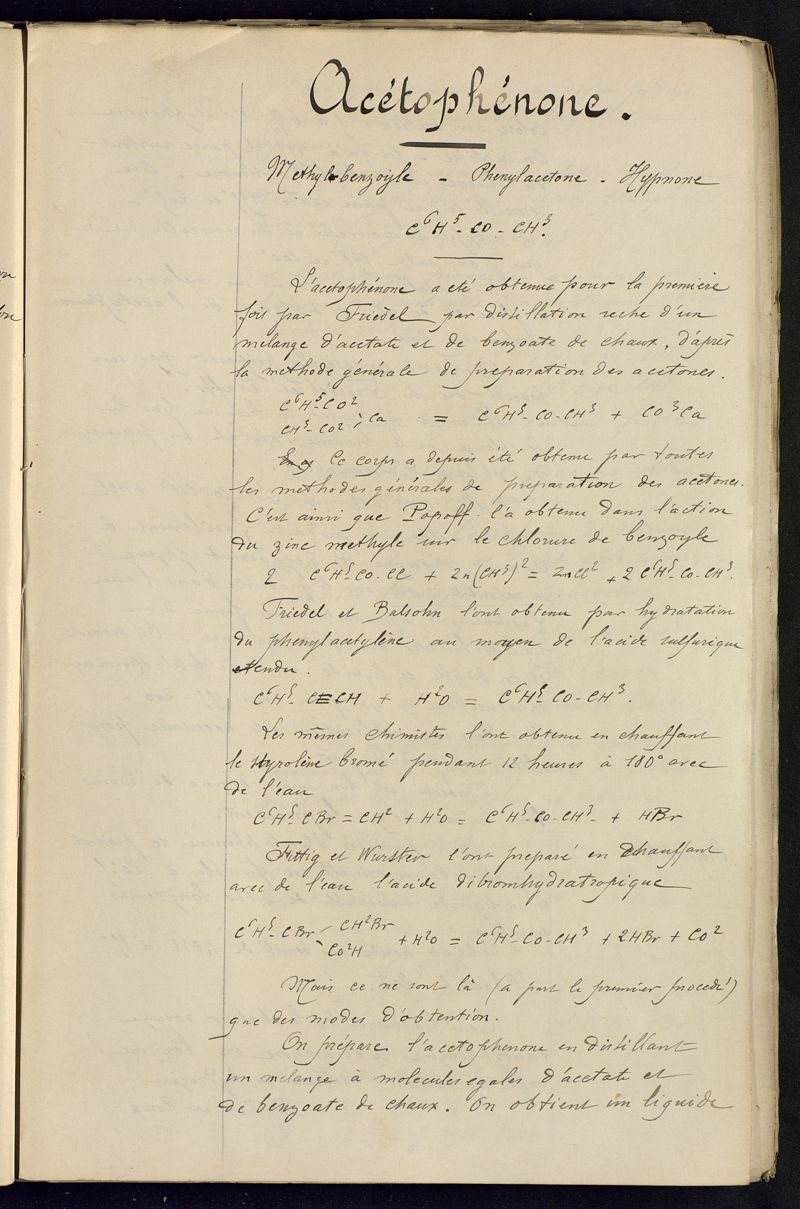 Acétophénone.
Methyl-benzoyle - Phenylacetone - Hypnone
C⁶H⁵-CO-CH³.
L'acetophénone a eté obtenue pour la première
fois par Friedel par distillation seche d'un
melange d'acetate et de benzoate de chaux, d'après
la methode générale de preparation des acetones.
C⁶H⁵-CO²
CH³-CO² > Ca = C⁶H⁵-CO-CH³ + CO³Ca
Ce corps a depuis été obtenu par toutes
les methodes générales de preparation des acetones.
C'est ainsi que Popoff l'a obtenu dans l'action
du zinc methyle sur le chlorure de benzoyle
2 C⁶H⁵-CO-Cl + Zn(CH³)² = ZnCl² + 2 C⁶H⁵-CO-CH³.
Friedel et Balsohn l'ont obtenu par hydratation
du phenylacetylène au moyen de l'acide sulfurique
etendu.
C⁶H⁵-C≡CH + H²O = C⁶H⁵ CO-CH³.
Les mêmes chimistes l'ont obtenu en chauffant
le styrolène bromé pendant 12 heures à 180° avec
de l'eau
C⁶H⁵-CBr=CH² + H²O = C⁶H⁵-CO-CH³- + HBr
Fittig et Wurster l'ont preparé en chauffant
avec de l'eau l'acide dibromhydratropique
C⁶H⁵-CBr CH²Br
CO²H + H²O = C⁶H⁵-CO-CH³ + 2HBr + CO²
Mais ce ne sont là (a part le premier procedé)
que des modes d'obtention.
On prépare l'acetophenone en distillant
un melange à molecules egales d'acetate et
de benzoate de chaux. On obtient un liquide